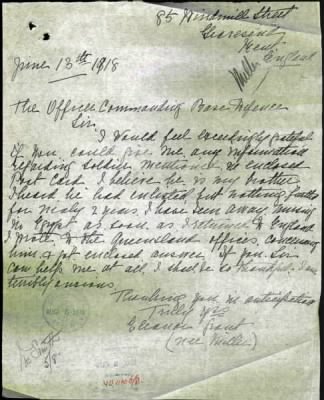 85 Windmill Street
Gravesend
Kent
England
Miller
June 13th 1918
The Officer Commanding Base Defence
Sir
I would feel exceedingly grateful
if you could give me any information
regarding soldier mentioned in enclosed
Post Card I believe he is my brother
I heard he had enlisted but nothing further
for nearly 2 years. I have been away nursing
in Egypt as soon as I returned to England
I wrote to the Queensland offices concerning
him & got enclosed answer. If you Sir
can help me at all I should be so thankful. I am
terribly anxious.
Thanking you in anticipation
Truly Yrs
Eleanor Grant
(nee Miller)
AUG 6 1918